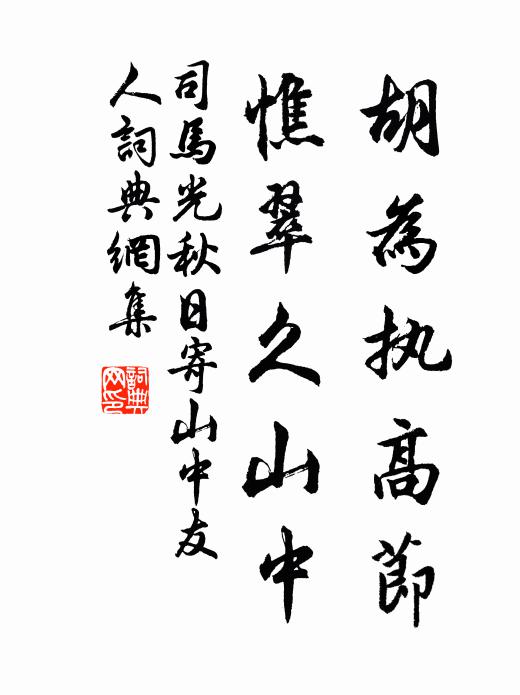 胡為执高節
憔翠久山中
司馬光秋日寄山中友
人詞典網集
詞典
网印